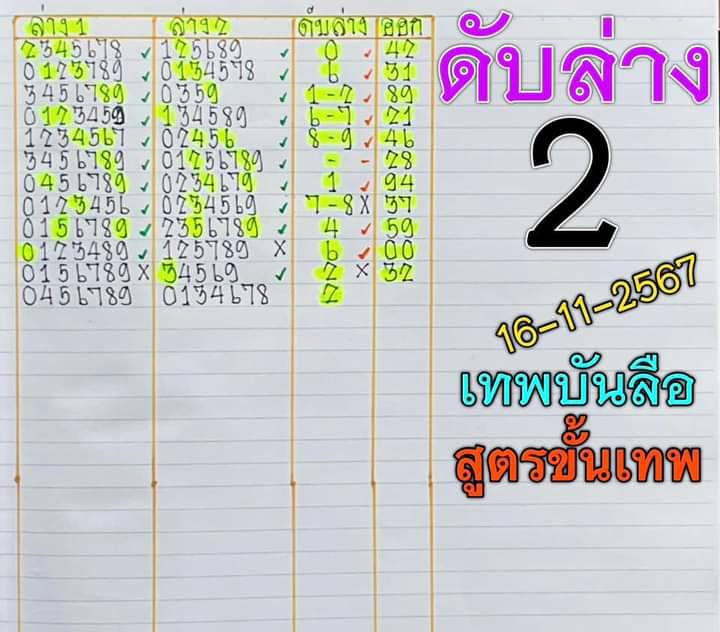 ล่าง1 ล่าง2 ดับล่าง ออก
2345678 ✓ 125689 ✓ 0 ✓ 42
0123789 ✓ 0134578 ✓ 6 ✓ 31
3456789 ✓ 0359 ✓ 1-2 ✓ 89
0123459 ✓ 134589 ✓ 6-7 ✓ 21
1234567 ✓ 02456 ✓ 8-9 ✓ 46
3456789 ✓ 01256789 ✓ - - 28
0456789 ✓ 0234679 ✓ 1 ✓ 94
0123456 ✓ 0234569 ✓ 7-8 X 37
0156789 ✓ 2356789 ✓ 4 ✓ 59
0123489 ✓ 125789 X 6 ✓ 00
0156789 X 34569 ✓ 2 X 32
0456789 0134678 2
ดับล่าง
2
16-11-2567
เทพบันลือ
สูตรขั้นเทพ